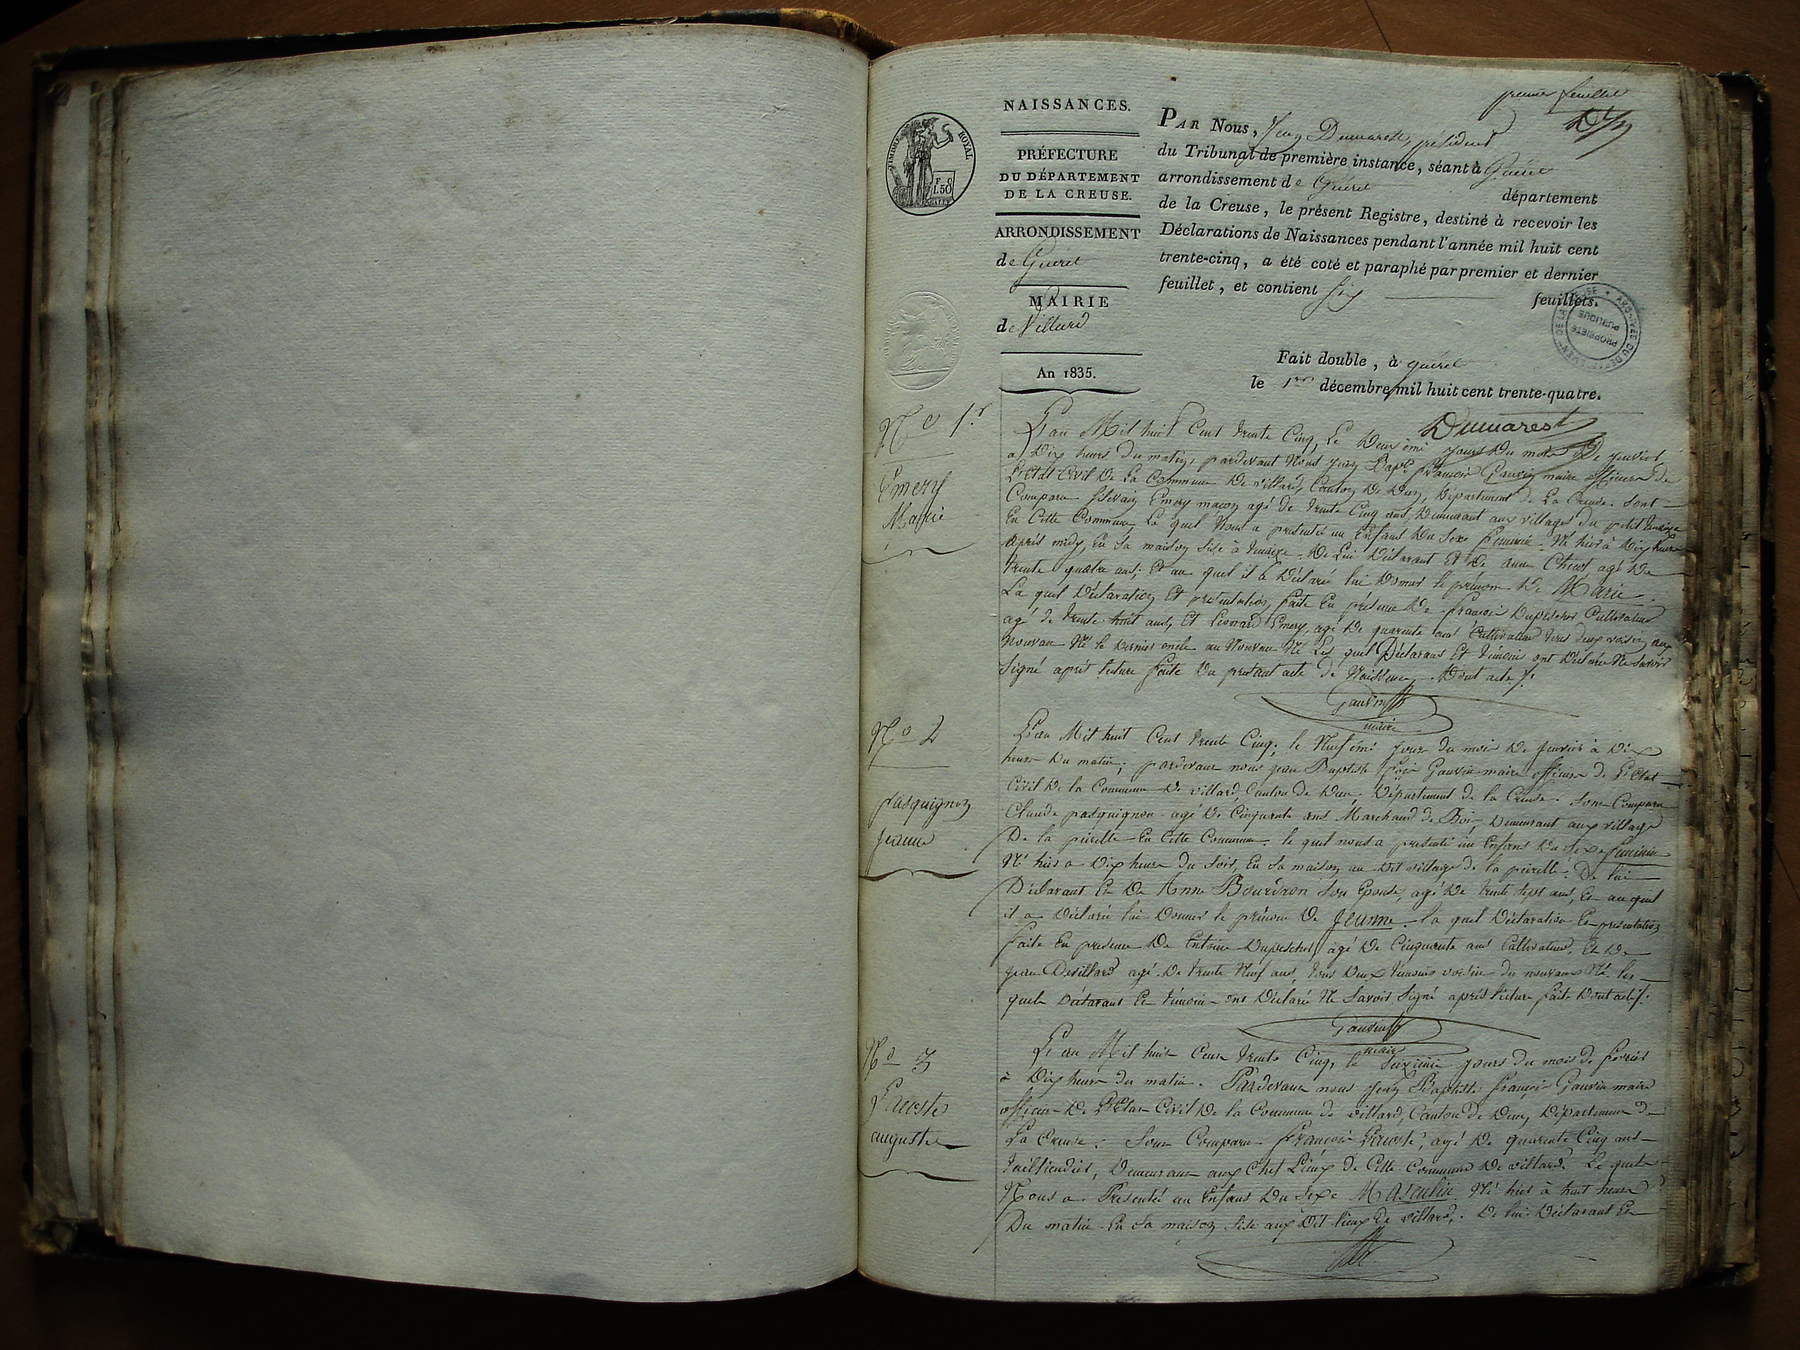 premier feuillet
NAISSANCES.
TIMBRE ROYAL
PRÉFECTURE
DU DÉPARTEMENT
DE LA CREUSE.
ARRONDISSEMENT
de Guéret
MAIRIE
de Villard
An 1835.
PAR Nous, Dumarest, président
du Tribunal de première instance, séant à Guéret
arrondissement de Guéret département
de la Creuse, le présent Registre, destiné à recevoir les
Déclarations de Naissances pendant l'année mil huit cent
trente-cinq, a été coté et paraphé par premier et dernier
feuillet, et contient six feuillets.
PROPRIÉTÉ PUBLIQUE
Fait double, à guéret
le 1er décembre mil huit cent trente-quatre.
Dumarest
No 1.r
Emery
Marie
L'an Mil huit Cent trente Cinq, Le Deuxième jours Du mois De janvier
a Dix heures du matin, pardevant Nous jean Bapte françois Gauvin maire officier de
L'Etat Civil De La Commune De villard, Canton De Dun, Département de La Creuse. Sont
Comparu Silvain Emery maçon agé De trente Cinq ans, Demeurant aux villages du petit
En Cette Commune, Le quel Nous a presentée un Enfant Du Sexe femmin. Né hier à Dix heure
après midy, En Sa maison Sise à . De Lui Déclarant Et De anne Chicot agé De
trente quatre ans; Et au quel il à Déclaré lui Donner le prénom De Marie.
La quel Déclaration Et présentation, faite En présence De françois Dupeschot Cultivateur
agé de trente huit ans, Et Léonard Emery, agé De quarante ans Cultivateur tous deux voisin aux
Nouveau Né le Dernier oncle au Nouveau Né Les quel Déclarans Et témoins ont Déclarée Ne Savoir
Signé après lecture faite Du présent acte de Naissance. Dont acte
Gauvin
maire
No 2
pasquignon
jeanne
L'an Mil huit Cent trente Cinq, le Neufième jour du mois De janvier à Dix
heure Du matin; pardevant nous jean Baptiste fçois Gauvin maire officier de L'Etat
Civil De la Commune De villard, Canton de Dun, Département de la Creuse. Sont Comparu
Claude pasquignon agé De Cinquante ans Marchand de Boi, Demeurant aux village
De la peirelle En Cette Commune. le quel nous a presenté un Enfant Du Sexe feminin
Né hier a Dix heure du Soir, En Sa maison au Dit village de la peirelle. De lui
Déclarant Et De Anne Bourdron Son Epouse, agé De trente Sept ans, Et au quel
il a Déclarée lui Donner le prénom De Jeanne. la quel Déclaration Et présentation
faite En presence De Entoine Dupeschot agé De Cinquante ans Cultivateur, Et De
jean Devillard agé De trente Neuf ans, tous Deux témoins voisin du nouveau Né. les
quels Déclarans Et témoin ont Déclaré Ne Savoir Signé après lecture faite Dont acte
Gauvin
maire
No 3
Lacoste
auguste
L'an Mil huit Cent trente Cinq, le Sixième jours du mois de fevrier
à Dix heure du matin. Pardevant nous jean Baptiste françois Gauvin maire
officier De L'Etat Civil De la Commune de villard, Canton de Dun, Département De
La Creuse. Sont Comparu françois Lacoste, agé De quarante Cinq ans
Demeurant aux Chef Lieux de Cette Commune De villard. Le quel
Nous a Presentée un Enfant Du Sexe Masculin Né hier à huit heure
Du matin En Sa maison Sise aux Dit lieux De villard. De lui Déclarant Et